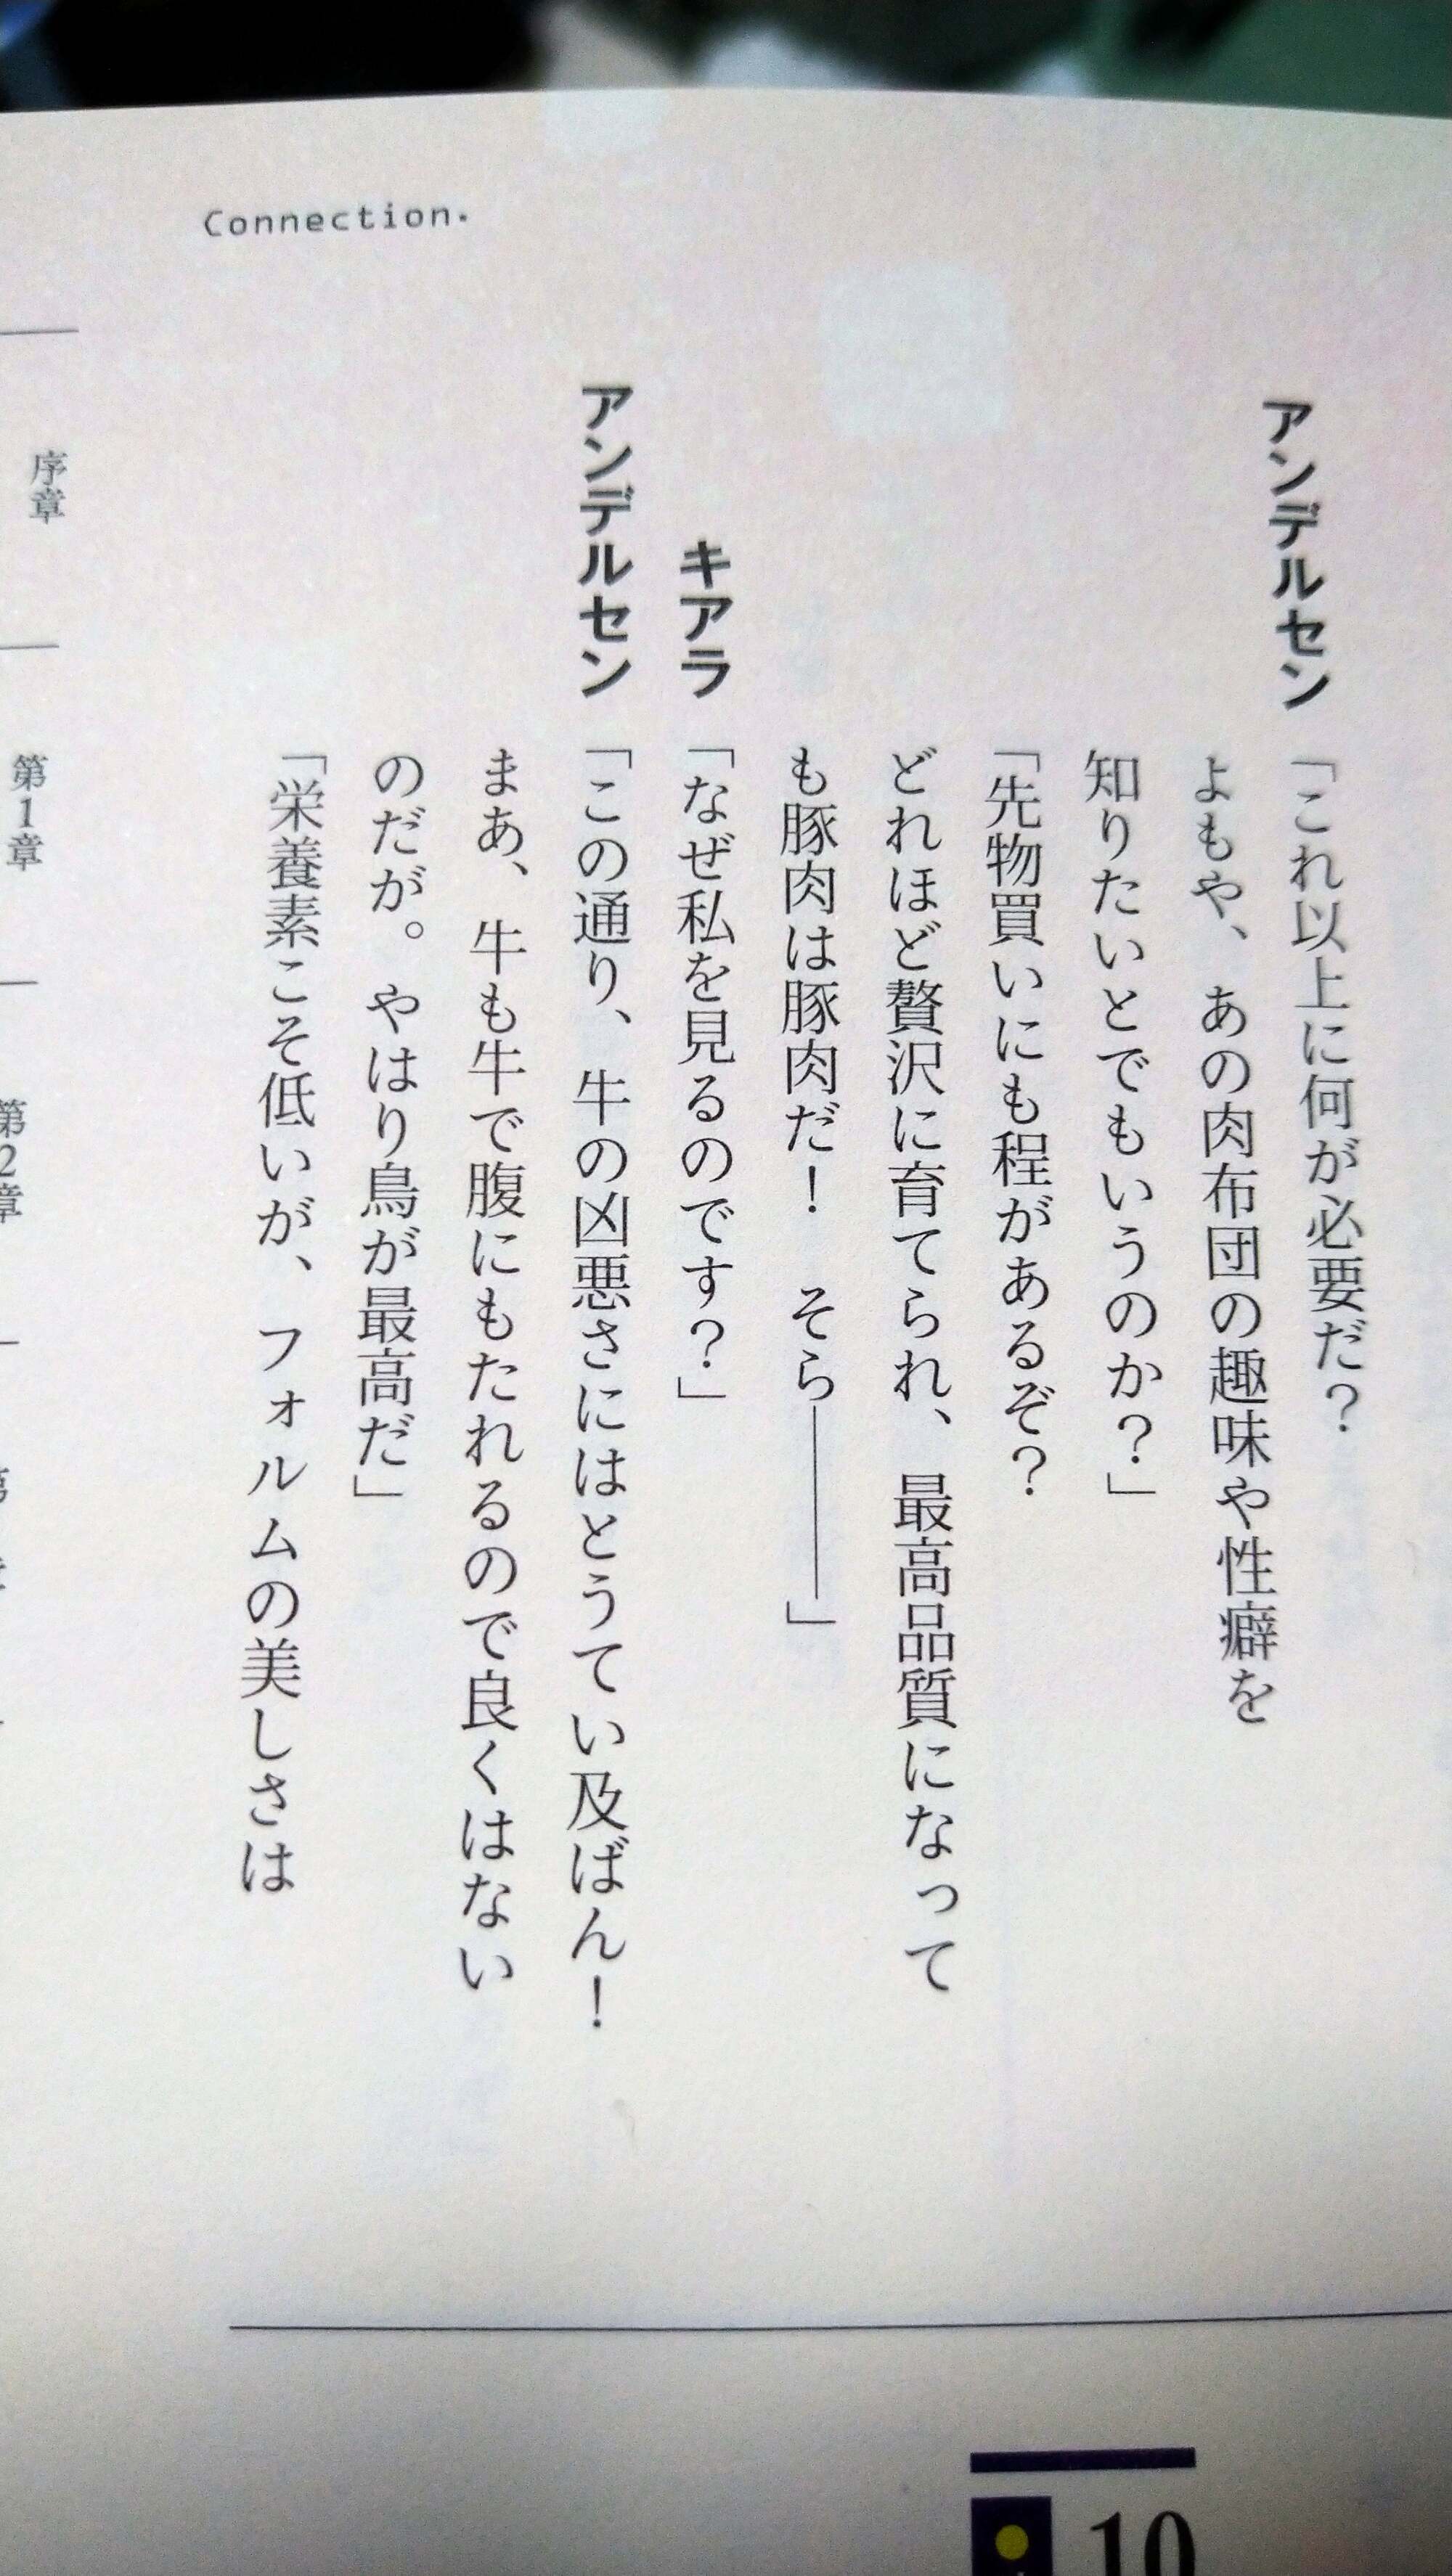 Connection.
アンデルセン「これ以上に何が必要だ？
よもや、あの肉布団の趣味や性癖を
知りたいとでもいうのか？」
「先物買いにも程があるぞ？
どれほど贅沢に育てられ、最高品質になって
も豚肉は豚肉だ！　そら———」
キアラ「なぜ私を見るのです？」
アンデルセン「この通り、牛の凶悪さにはとうてい及ばん！
まあ、牛も牛で腹にもたれるので良くはない
のだが。やはり鳥が最高だ」
「栄養素こそ低いが、フォルムの美しさは
序章
第1章
第2章
10